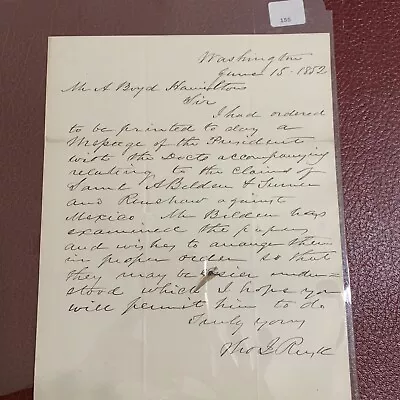 155
Washington
June 15 - 1852
Mr A Boyd Hamilton
Sir
I had ordered
to be printed to day a
Message of the President
with the Docts accompanying
relating to the claims of
Saml A Belden & Turner
and Renshaw against
Mexico. Mr Belden has
examined the papers
and wishes to arrange them
in proper order so that
they may be easier under=
stood which I hope you
will permit him to do
Truly yours
Tho J Rusk